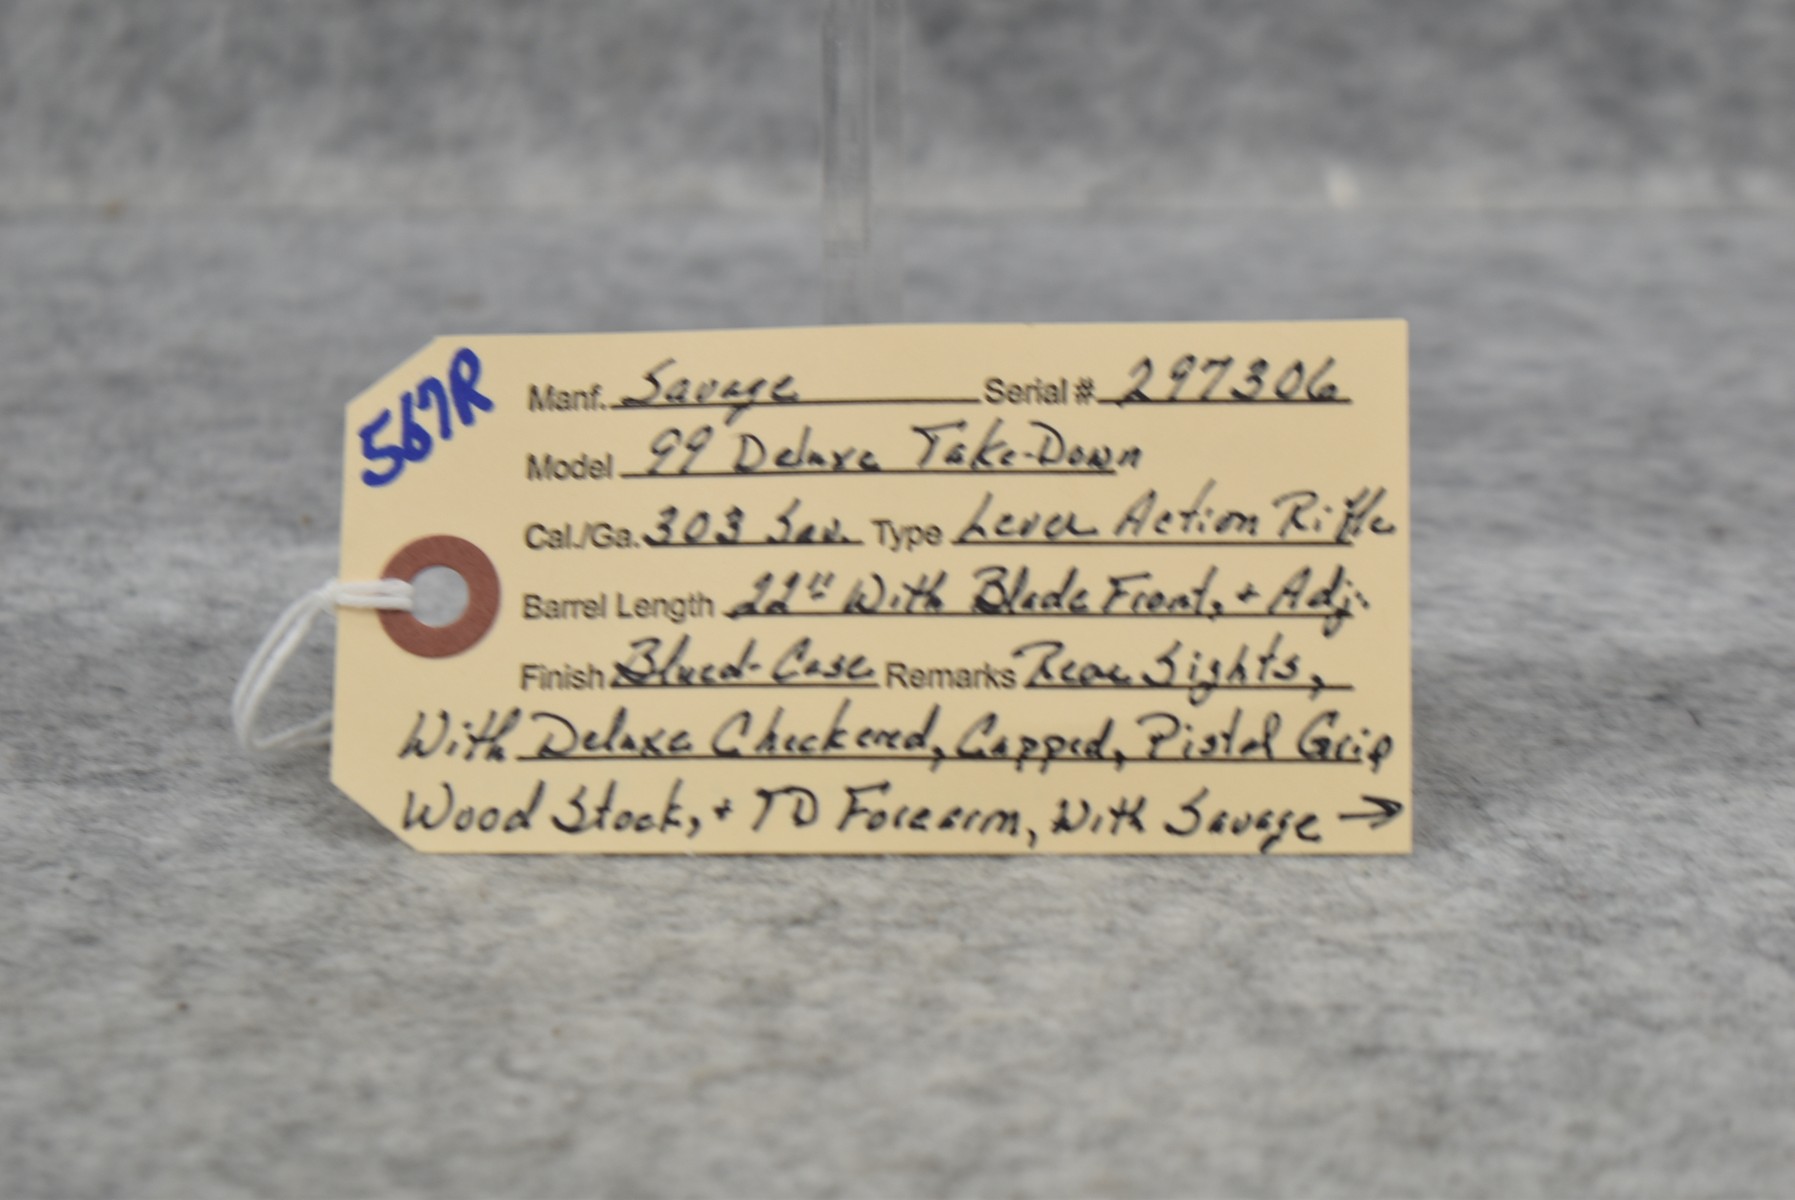 567R
Manf. Savage Serial # 297306
Model 99 Deluxe Take-Down
Cal./Ga. 303 Sav. Type Lever Action Rifle
Barrel Length 22" With Blade Front, + Adj.
Finish Blued-Case Remarks Rear Sights,
With Deluxe Checkered, Capped, Pistol Grip
Wood Stock, + TD Forearm, With Savage →